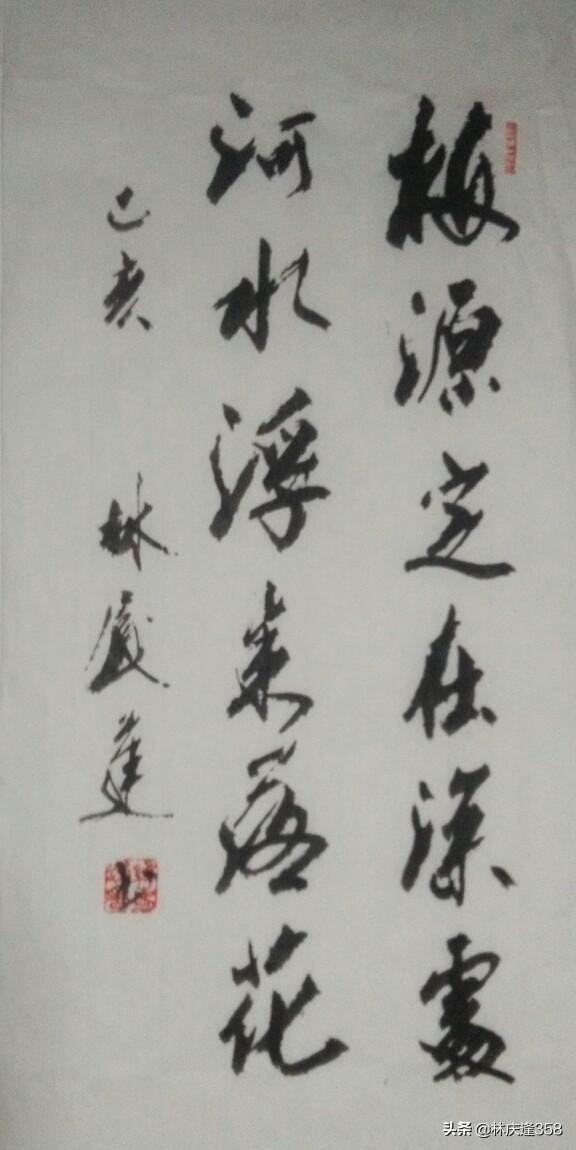 梅源定在深處
河水浮来落花
己亥
林慶逢
书
头条 @林庆逢358